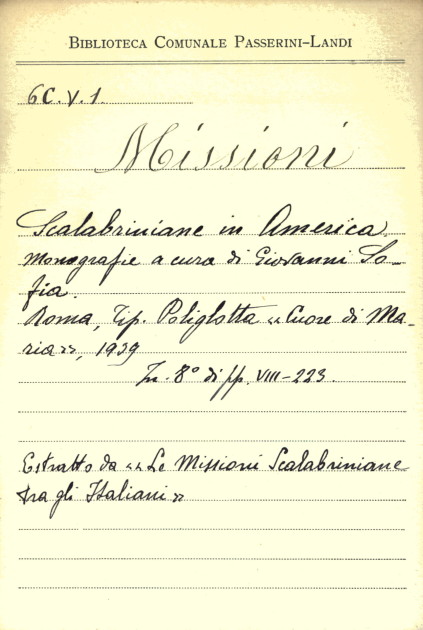 BIBLIOTECA COMUNALE PASSERINI-LANDI
6C. V. 1.
Missioni
Scalabriniane in America.
Monografie a cura di Giovanni So-
fia.
Roma, Tip. Poliglotta «Cuore di Ma-
ria», 1939
In. 8° di pp. VIII-223.
Estratto da «Le Missioni Scalabriniane
tra gli Italiani»